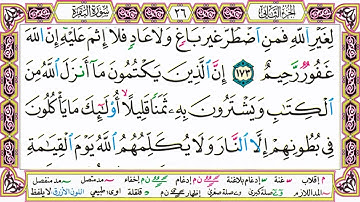 الجزء الثاني ٢٦ سورة البقرة
لِغَيْرِ اللَّهِ فَمَنِ اضْطُرَّ غَيْرَ بَاغٍ وَلَا عَادٍ فَلَا إِثْمَ عَلَيْهِ إِنَّ اللَّهَ
غَفُورٌ رَحِيمٌ ١٧٣ إِنَّ الَّذِينَ يَكْتُمُونَ مَا أَنْزَلَ اللَّهُ مِنَ
الْكِتَابِ وَيَشْتَرُونَ بِهِ ثَمَنًا قَلِيلًا أُولَٰئِكَ مَا يَأْكُلُونَ
فِي بُطُونِهِمْ إِلَّا النَّارَ وَلَا يُكَلِّمُهُمُ اللَّهُ يَوْمَ الْقِيَامَةِ